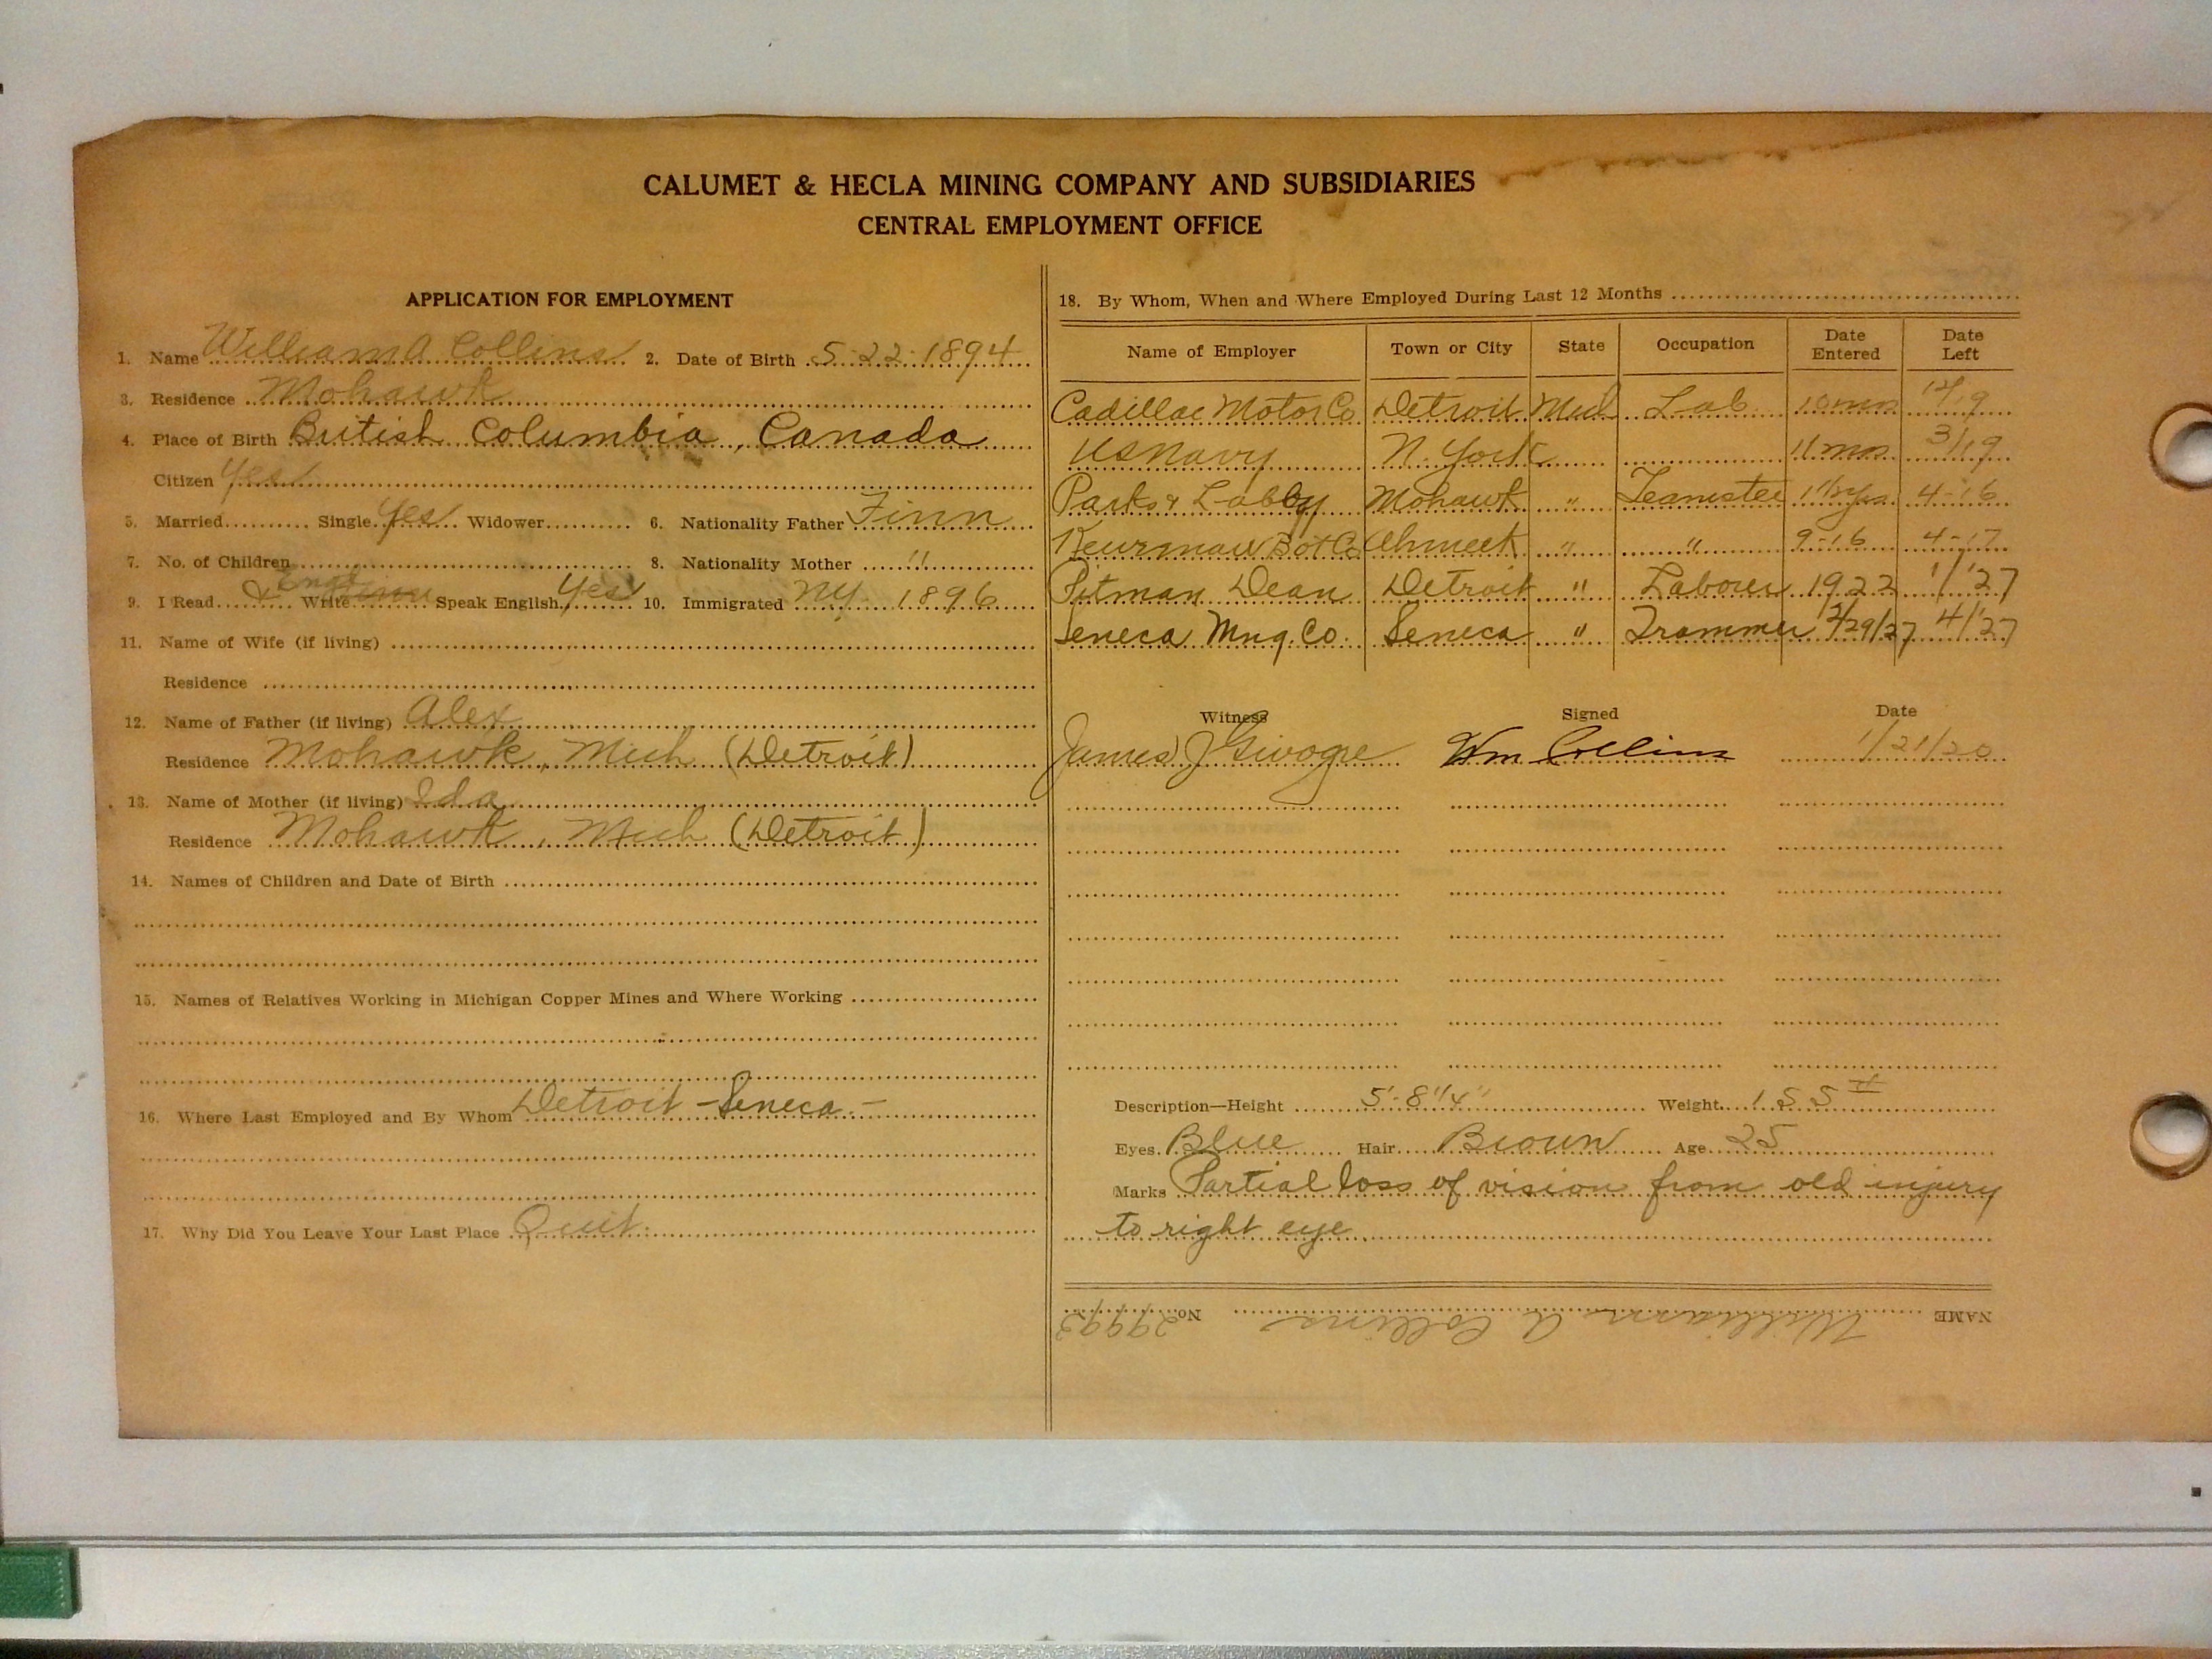 CALUMET & HECLA MINING COMPANY AND SUBSIDIARIES
CENTRAL EMPLOYMENT OFFICE
APPLICATION FOR EMPLOYMENT
1. Name William A Collins 2. Date of Birth 5-22-1894
3. Residence Mohawk
4. Place of Birth British Columbia, Canada
Citizen Yes
5. Married Single Yes Widower 6. Nationality Father Finn
7. No. of Children 8. Nationality Mother "
Engl
9. I Read & Write Finn Speak English Yes 10. Immigrated NY 1896
11. Name of Wife (if living)
Residence
12. Name of Father (if living) Alex
Residence Mohawk, Mich (Detroit)
13. Name of Mother (if living) Ida
Residence Mohawk, Mich (Detroit)
14. Names of Children and Date of Birth
15. Names of Relatives Working in Michigan Copper Mines and Where Working
16. Where Last Employed and By Whom Detroit - Seneca -
17. Why Did You Leave Your Last Place Quit.
18. By Whom, When and Where Employed During Last 12 Months
Name of Employer Town or City State Occupation Date Entered Date Left
Cadillac Motor Co Detroit Mich Lab 10 mos 12/19
US Navy N. York 11 mos 3/19
Parks & Lobby Mohawk " Teamster 4-16
Bot Co Ahmeek " " 9-16 4-17
Pitman Dean Detroit " Laborer 1922 1/27
Seneca Mng. Co. Seneca " Trammer 2/29/27 4/27
Witness Signed Date
James J Wm Collins 1/21/20
Description—Height 5'-8 1/4" Weight 155 #
Eyes Blue Hair Brown Age 25
Marks Partial loss of vision from old injury
to right eye
NAME William A Collins No. 29993